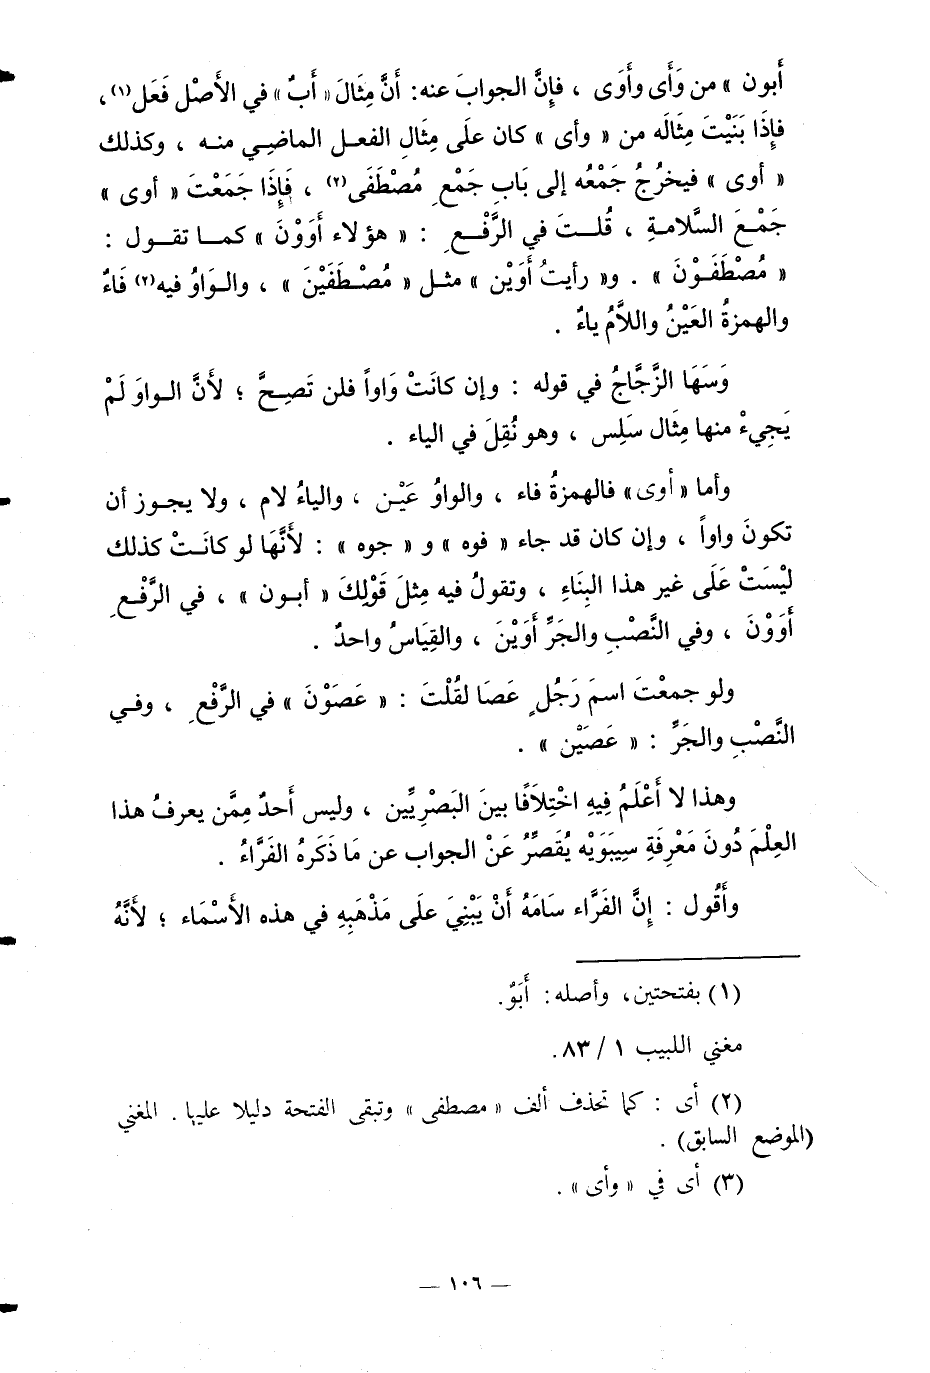 أبون » من وَأَى وأَوَى ، فإِنَّ الجوابَ عنه: أَنَّ مِثَالَ « أَبٌ » في الأَصْل فَعَل(١)،
فإِذَا بَنَيْتَ مِثَالَه من « وأى » كان علَى مِثَالِ الفعـل الماضـي منـه ، وكذلك
« أوى » فيخرُجُ جَمْعُه إلى بَابِ جَمْعِ مُصْطَفَى(٢) ، فَإِذَا جَمَعْتَ « أوى »
جَمْـعَ السَّلامـةِ ، قُلـتَ في الرَّفْـعِ : « هؤلاء أَوَوْنَ » كمـا تقـول :
« مُصْطَفَـوْنَ » . و« رأيتُ أَوَيْن » مثـل « مُصْـطَفَيْنَ » ، والـوَاوُ فيه(٢) فَاءٌ
والهمزةُ العَيْنُ واللاَّمُ ياءٌ .
وَسَهَا الزَّجَّاجُ في قوله : وإن كانَتْ وَاواً فلن تَصِـحَّ ؛ لأَنَّ الـواوَ لَمْ
يَجِيءْ منها مِثَال سَلِس ، وهو نُقِلَ في الياء .
وأما « أوى» فالهمزةُ فاء ، والواوُ عَيْـن ، والياءُ لام ، ولا يجـوز أن
تكونَ واواً ، وإن كان قد جاء « فوه » و « جوه » : لأَنَّهَا لو كانَـتْ كذلك
ليْسَتْ عَلَى غير هذا البِنَاءِ ، وتقولُ فيه مِثلَ قَوْلِكَ « أبـون » ، في الرَّفْـعِ
أَوَوْنَ ، وفي النَّصْبِ والجَرِّ أَوَيْنَ ، والقِيَاسُ واحدٌ .
ولو جمعْتَ اسمَ رَجُلٍ عَصَا لقُلْتَ : « عَصَوْنَ » في الرَّفْعِ ، وفـي
النَّصْبِ والجَرِّ : « عَصَيْن » .
وهذا لا أَعْلَمُ فِيهِ اخْتِلاَفًا بينَ البَصْرِيِّين ، وليس أَحدٌ مِمَّن يعرفُ هذا
العِلْمَ دُونَ مَعْرِفَةِ سِيبَوَيْه يُقَصِّرُ عَنْ الجواب عن مَا ذَكَرهُ الفَرَّاءُ .
وأَقُول : إِنَّ الفَرَّاء سَامَهُ أَنْ يَبْنِيَ علَى مَذْهَبِهِ في هذه الأَسْمَاء ؛ لأَنَّهُ
(١) بفتحتين، وأصله: أَبَوٌ.
مغني اللبيب ١ / ٨٣.
(٢) أى : كما تحذف ألف « مصطفى » وتبقى الفتحة دليلا عليها . المغني
(الموضع السابق) .
(٣) أى في « وأى» .
— ١٠٦ —